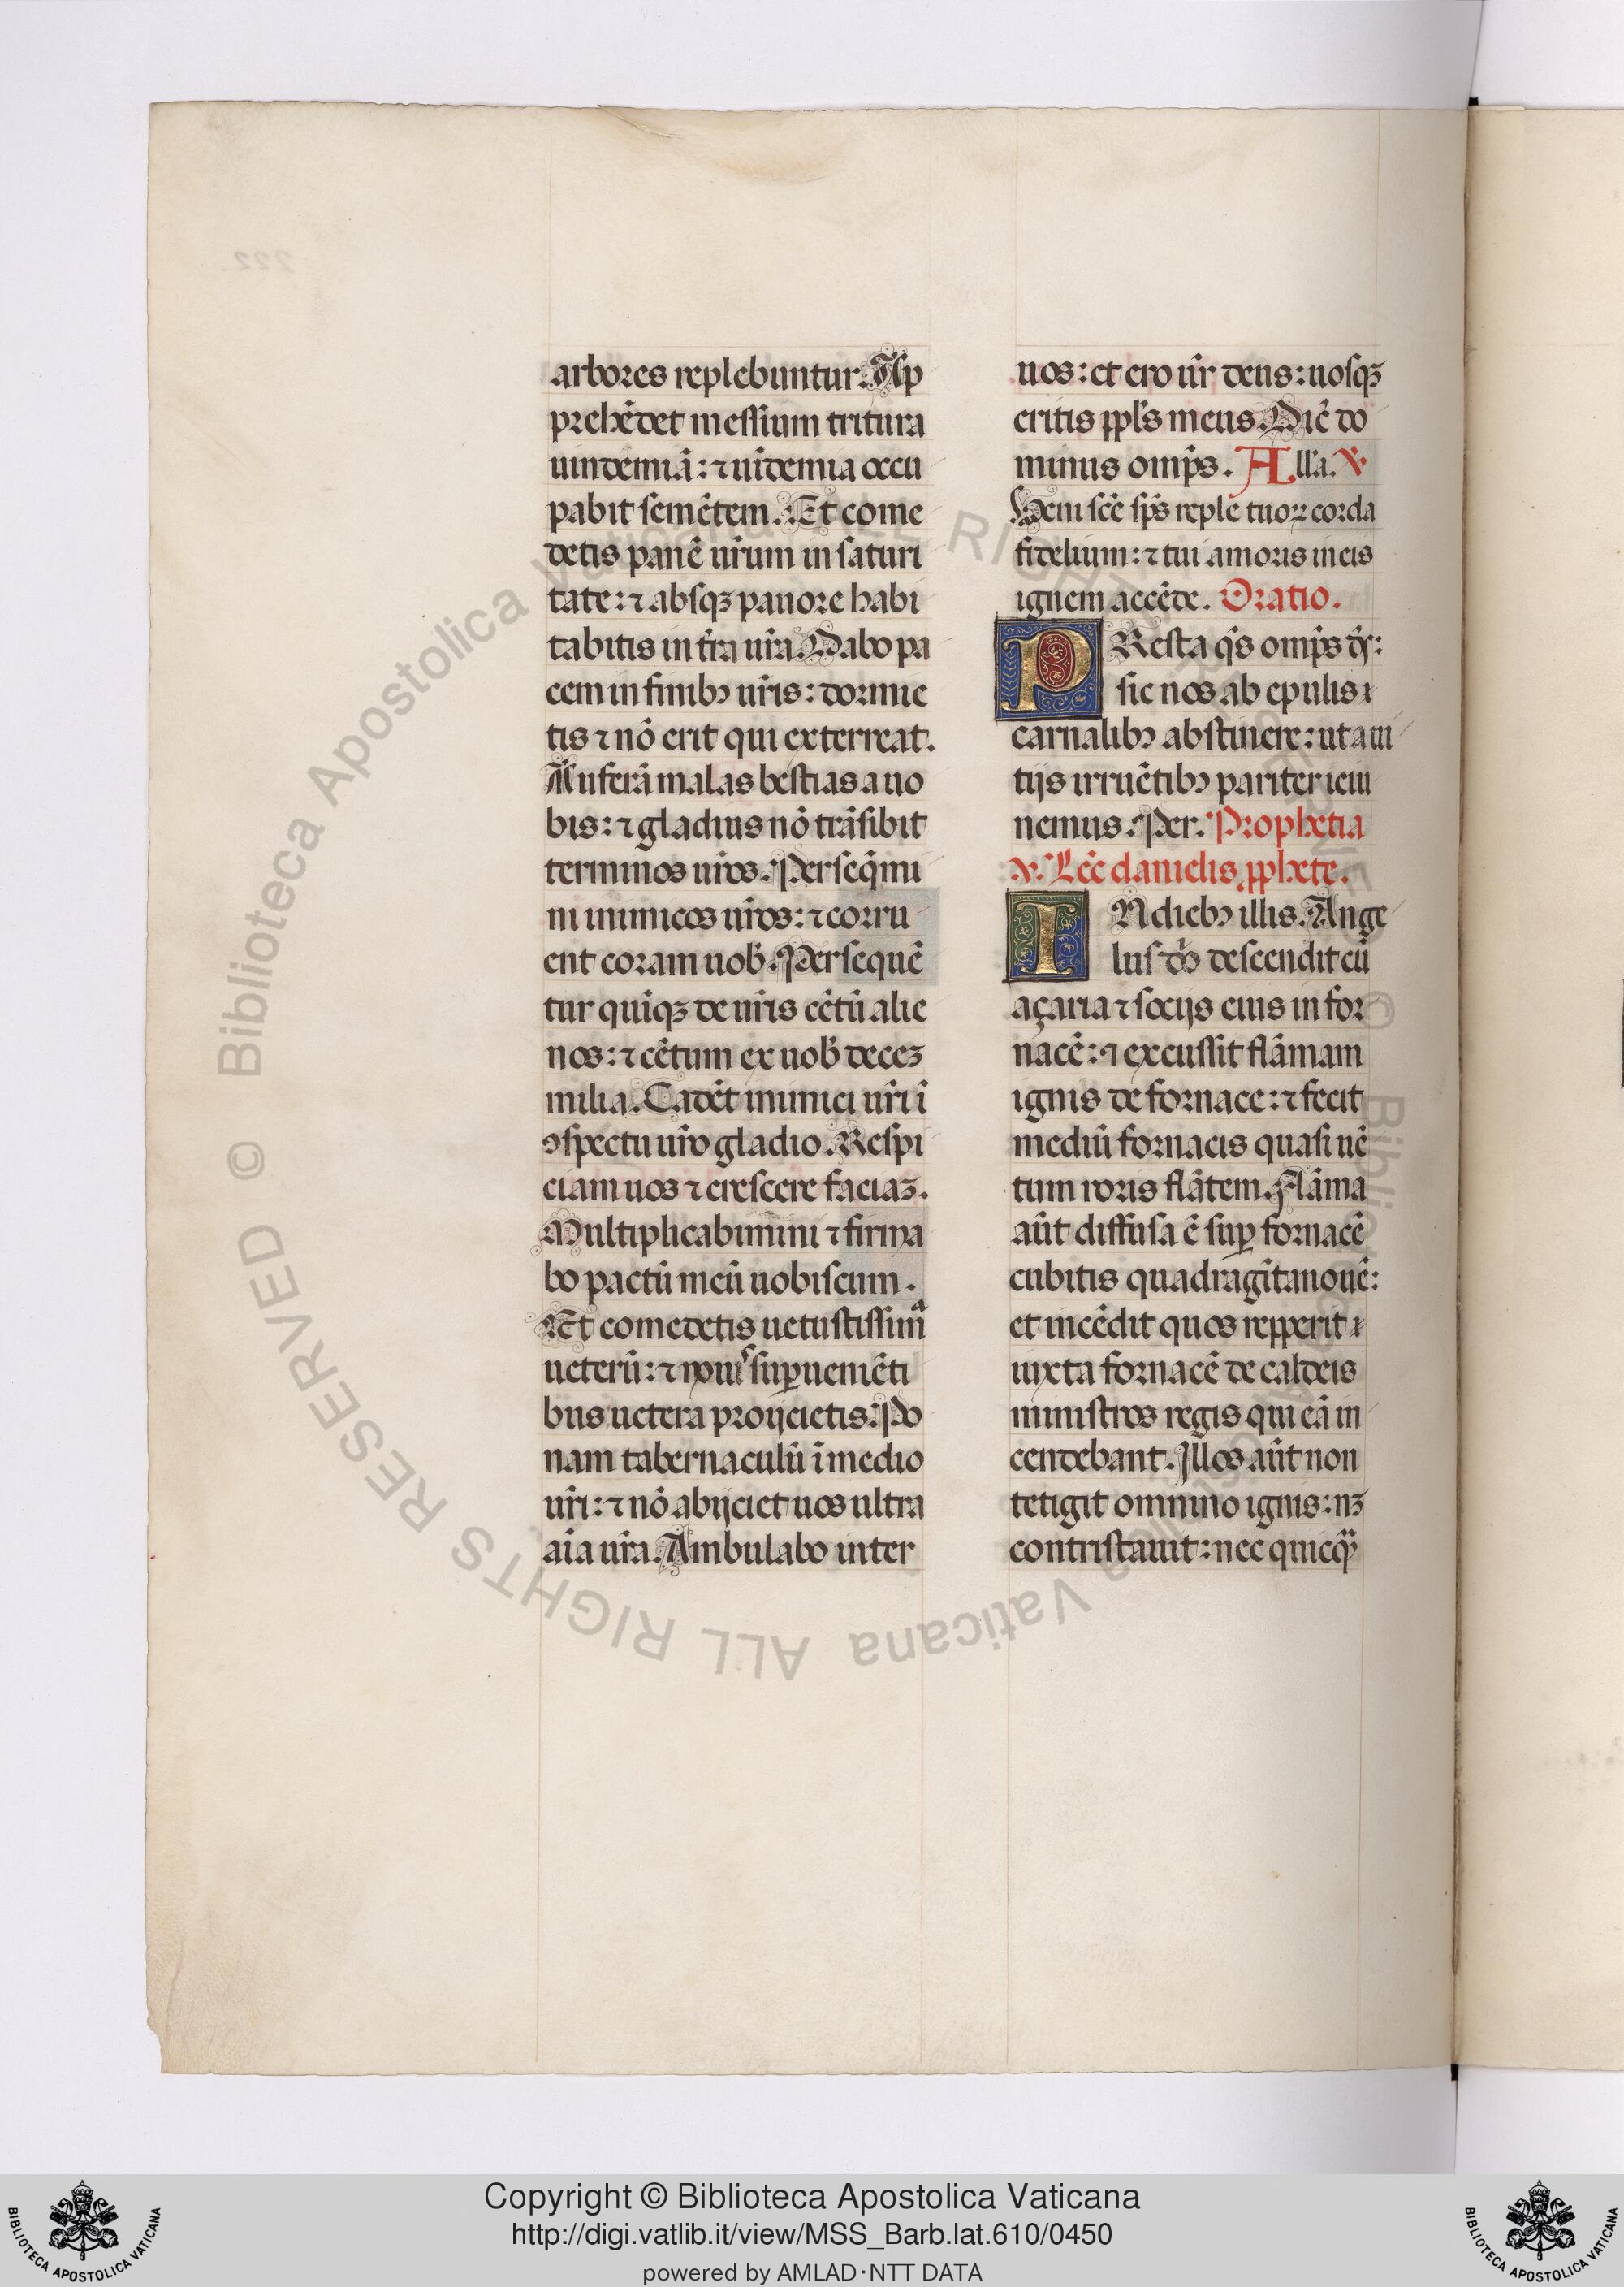 arbores replebuntur. Ap
prehēdet messium tritura
uindemiā: ⁊ uīdemia occu
pabit semētem. Et come
detis panē ur̄um in saturi
tate: ⁊ absqꝫ pauore habi
tabitis in tr̄a ur̄a. Dabo pa
cem in finibꝰ ur̄is: dormie
tis ⁊ nō erit qui exterreat.
Auferā malas bestias a uo
bis: ⁊ gladius nō trāsibit
terminos ur̄os. Perseq̄mi
ni inimicos ur̄os: ⁊ corru
ent coram uob̄. Persequē
tur quīqꝫ de ur̄is cētū alie
nos: ⁊ cētum ex uob̄ deceꝫ
milia. Cadēt inimici ur̄i ī
ꝯspectu ur̄o gladio. Respi
ciam uos ⁊ crescere faciaꝫ.
Multiplicabimini ⁊ firma
bo pactū meū uobiscum.
Et comedetis uetustissimᵃ
ueterū: ⁊ nouiˢ suꝑueniēti
bus uetera proijcietis. Po
nam tabernaculū ī medio
ur̄i: ⁊ nō abijciet uos ultra
aīa ur̄a. Ambulabo inter
uos: et ero ur̄ deus: uosqꝫ
eritis ppl̄s meus. Dic̄ do
minus omp̄s. All'a. ℣
Veni sc̄e sp̄s reple tuoꝝ corda
fidelium: ⁊ tui amoris in eis
ignem accēde. Oratio.
PResta q̄s omp̄s d̄s:
sic nos ab epulis
carnalibꝰ abstinere: ut a ui
tijs irruētibꝰ pariter ieiu
nemus. Per. Prophetia
v. Lēc danielis pphete.
INdiebꝰ illis. Ange
lus dn̄i descendit cū
açaria ⁊ socijs eius in for
nacē: ⁊ excussit flāmam
ignis de fornace: ⁊ fecit
mediū fornacis quasi uē
tum roris flātem. Flāma
aūt diffusa ē suꝑ fornacē
cubitis quadragītanouē:
et incēdit quos repperit
iuxta fornacē de caldeis
ministros regis qui eā in
cendebant. Illos aūt non
tetigit omnino ignis: nꝫ
contristauit: nec quicqᵃ̄
222.
© Biblioteca Apostolica Vaticana ALL RIGHTS RESERVED © Biblioteca Apostolica Vaticana ALL RIGHTS RESERVED
Copyright © Biblioteca Apostolica Vaticana
http://digi.vatlib.it/view/MSS_Barb.lat.610/0450
powered by AMLAD·NTT DATA
BIBLIOTECA APOSTOLICA VATICANA
BIBLIOTECA APOSTOLICA VATICANA